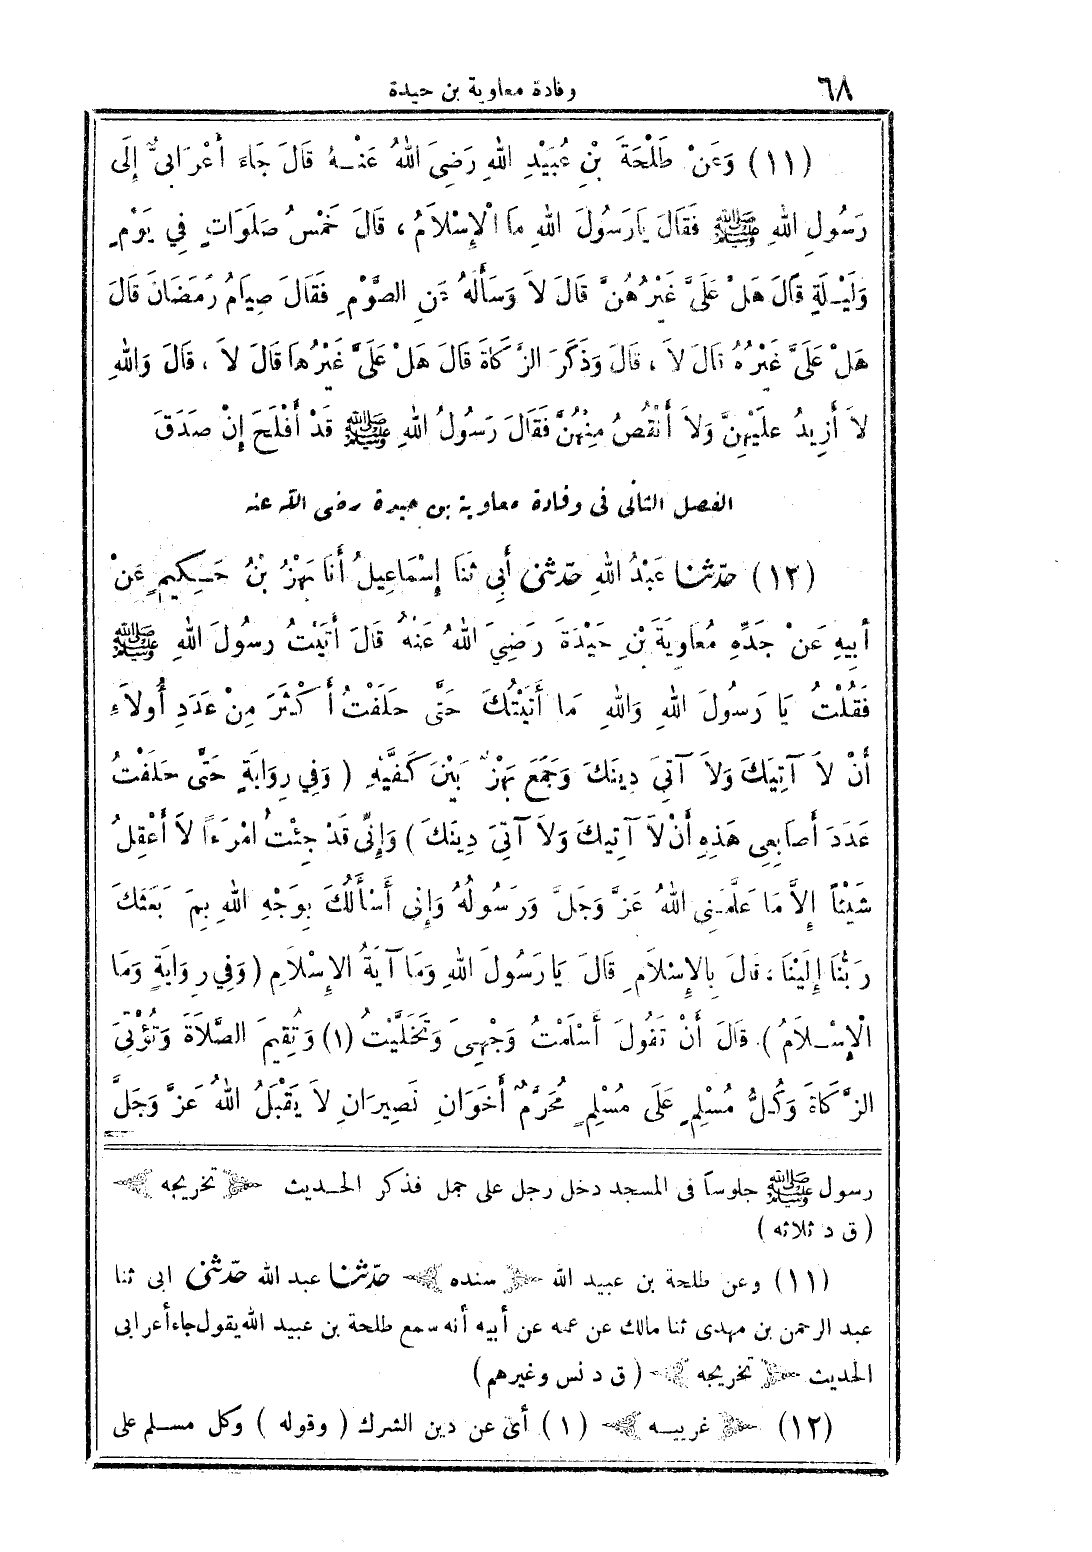 ٦٨
وفادة معاوية بن حيدة
(١١) وَعَنْ طَلْحَةَ بْنِ عُبَيْدِ اللهِ رَضِيَ اللهُ عَنْـهُ قَالَ جَاءَ أَعْرَابِيٌّ إِلَى
رَسُولِ اللهِ ﷺ فَقَالَ يَارَسُولَ اللهِ مَا الْإِسْلَامُ ، قَالَ خَمْسُ صَلَوَاتٍ فِي يَوْمٍ
وَلَيْـلَةٍ قَالَ هَلْ عَلَيَّ غَيْرُهُنَّ قَالَ لَا وَسَأَلَهُ عَنِ الصَّوْمِ فَقَالَ صِيَامُ رَمَضَانَ قَالَ
هَلْ عَلَيَّ غَيْرُهُ قَالَ لَا ، قَالَ وَذَكَرَ الزَّكَاةَ قَالَ هَلْ عَلَيَّ غَيْرُهَا قَالَ لَا ، قَالَ وَاللهِ
لَا أَزِيدُ عَلَيْهِنَّ وَلَا أَنْقُصُ مِنْهُنَّ فَقَالَ رَسُولُ اللهِ ﷺ قَدْ أَفْلَحَ إِنْ صَدَقَ
الفصل الثانى فى وفادة معاوية بن حيدة رضى الله عنه
(١٢) حدّثنا عَبْدُ اللهِ حدّثنى أَبِي ثَنَا إِسْمَاعِيلُ أَنَا بَهْزُ بْنُ حَـكِيمٍ عَنْ
أَبِيهِ عَنْ جَدِّهِ مُعَاوِيَةَ بْنِ حَيْدَةَ رَضِيَ اللهُ عَنْهُ قَالَ أَتَيْتُ رسُولَ اللهِ ﷺ
فَقُلْتُ يَا رَسُولَ اللهِ وَاللهِ مَا أَتَيْتُكَ حَتَّى حَلَفْتُ أَكْثَرَ مِنْ عَدَدِ أُولَاءِ
أَنْ لَا آتِيَكَ وَلَا آتِيَ دِينَكَ وَجَمَعَ بَهْزٌ بَيْنَ كَفَّيْهِ ( وَفِي رِوَايَةٍ حَتَّى حَلَفْتُ
عَدَدَ أَصَابِعِي هَذِهِ أَنْ لَا آتِيكَ وَلَا آتِيَ دِينَكَ ) وَإِنِّي قَدْ جِئْتُ امْرَءًا لَا أَعْقِلُ
شَيْئًا إِلَّا مَا عَلَّمَنِي اللهُ عَزَّ وَجَلَّ وَرَسُولُهُ وَإِنِي أَسْأَلُكَ بِوَجْهِ اللهِ بِمَ بَعَثَكَ
رَبُّنَا إِلَيْنَا ، قَالَ بِالإِسْلَامِ قَالَ يَارَسُولَ اللهِ وَمَا آيَةُ الإِسْلَامِ ( وَفِي رِوَايَةٍ وَمَا
الْإِسْـلَامُ ) قَالَ أَنْ تَقُولَ أَسْلَمْتُ وَجْهِيَ وَتَخَلَّيْتُ (١) وَتُقِيمَ الصَّلَاةَ وَتُؤْتِيَ
الزَّكَاةَ وَكُلُّ مُسْلِمٍ عَلَى مُسْلِمٍ مُحَرَّمٌ أَخَوَانِ نَصِيرَانِ لَا يَقْبَلُ اللهُ عَزَّ وَجَلَّ
رسول ﷺ جلوساً فى المسجد دخل رجل على جمل فذكر الحـديث تخريجه
( ق د ثلاثه )
(١١) وعن طلحة بن عبيد الله سنده حدّثنا عبد الله حدّثنى ابى ثنا
عبد الرحمن بن مهدى ثنا مالك عن عمه عن أبيه أنه سمع طلحة بن عبيد الله يقول جاء أعرابى
الحديث تخريجه ( ق د نس وغيرهم )
(١٢) غريبـه (١) أى عن دين الشرك ( وقوله ) وكل مسـلم على